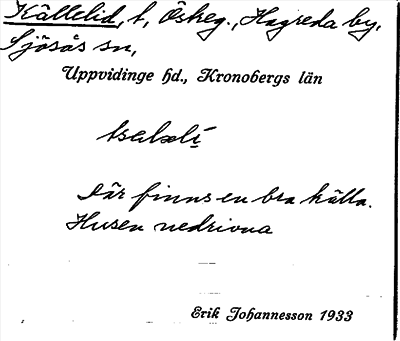 Källelid, t, Östreg., Hagreda by,
Sjösås sn,
Uppvidinge hd., Kronobergs län
Där finns en bra källa.
Husen nedrivna
Erik Johannesson 1933